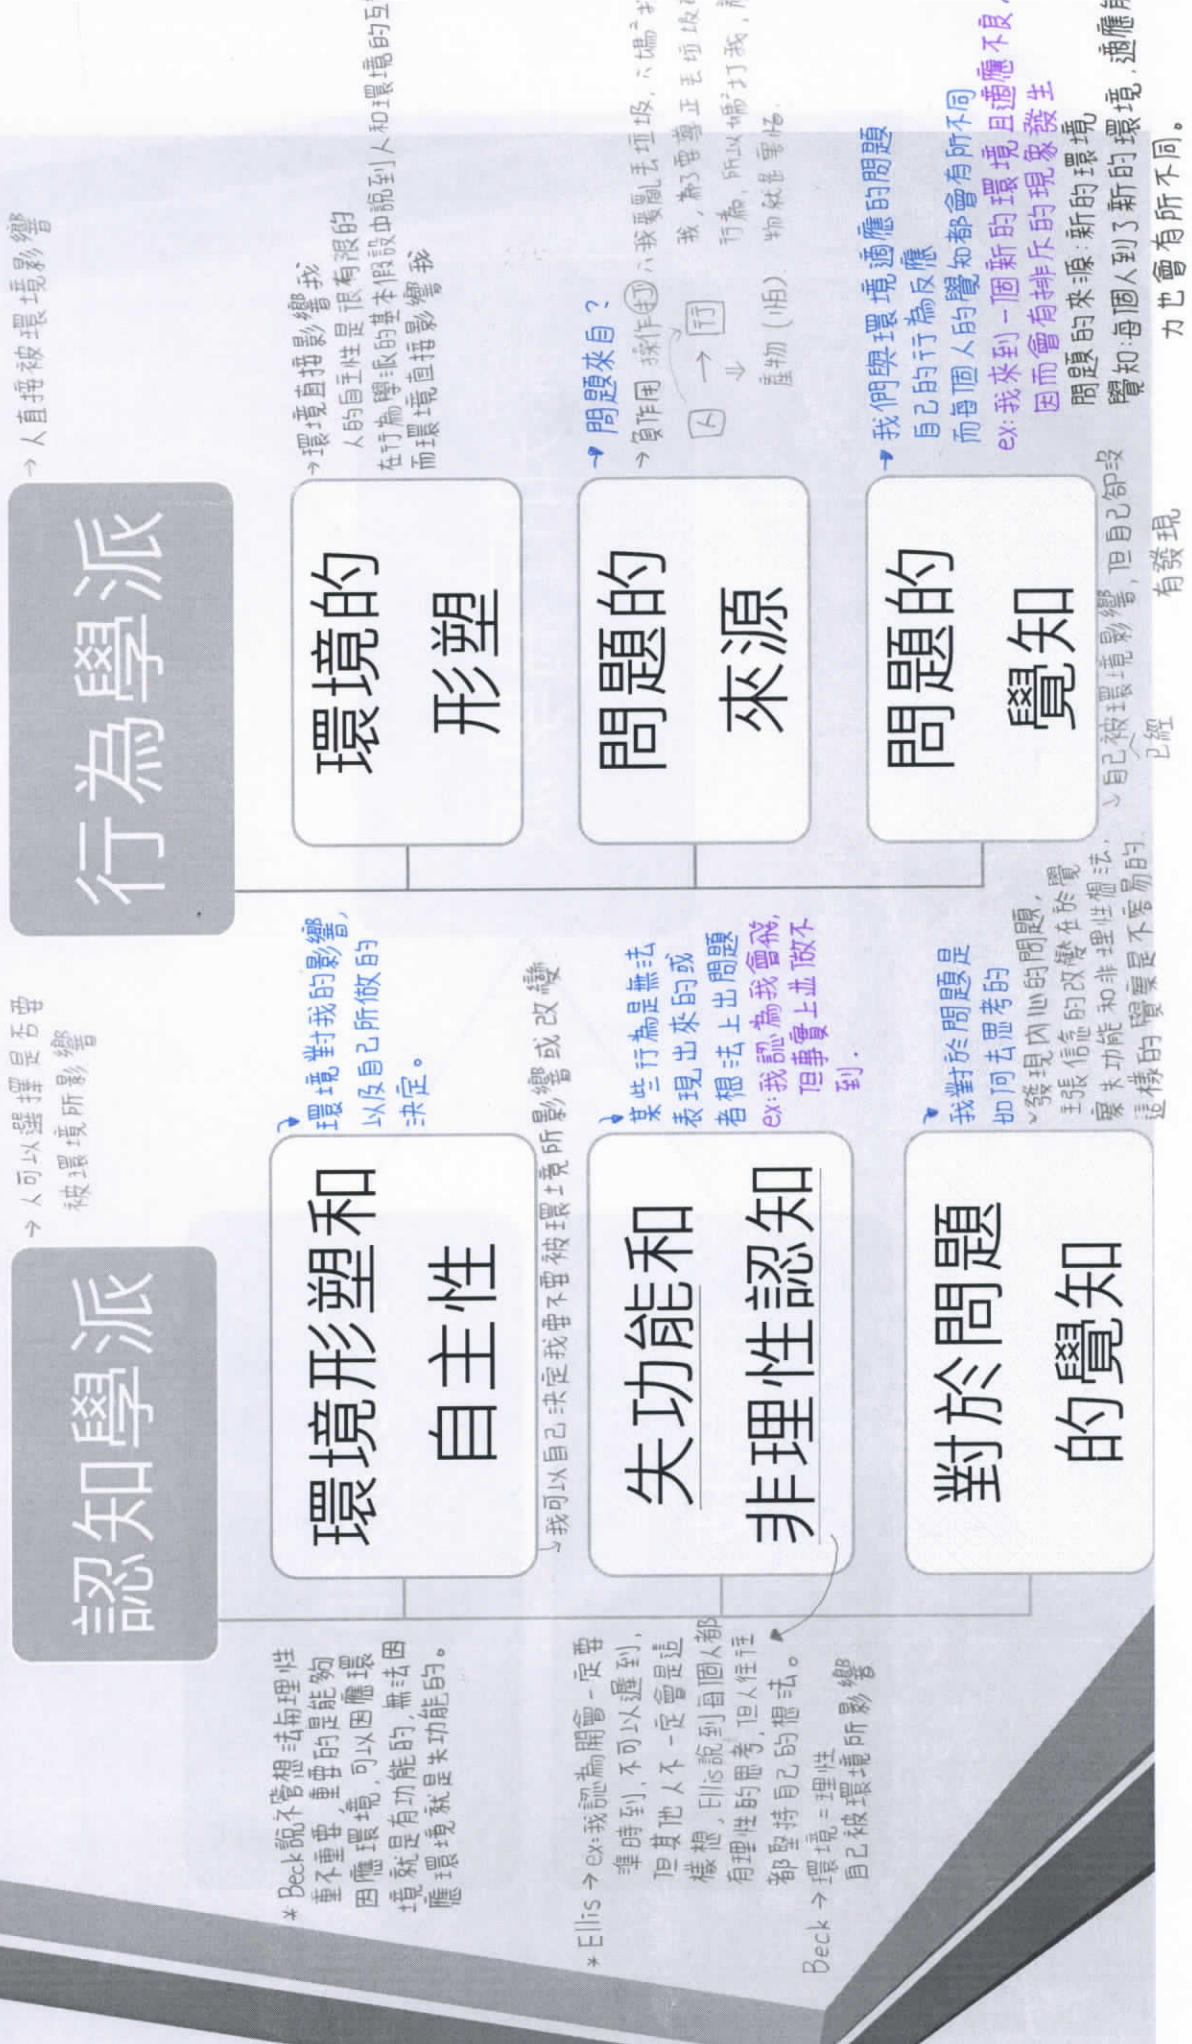 認知學派
→ 人可以選擇是否要
被環境所影響
* Beck說不管想法與理性
重不重要，重要的是能夠
因應環境，可以因應環
境就是有功能的，無法因
應環境就是失功能的。
環境形塑和
自主性
環境對我的影響，
以及自己所做的
決定。
我可以自己決定我要不要被環境所影響或改變
* Ellis → ex:我認為開會一定要
準時到，不可以遲到，
但其他人不一定會是這
樣想，Ellis說到每個人都
有理性的思考，但人往往
都堅持自己的想法。
Beck → 環境=理性
自己被環境所影響
失功能和
非理性認知
某些行為是無法
表現出來的或
者想法上出問題
ex:我認為我會飛，
但事實上並做不
到.
對於問題
的覺知
我對於問題是
如何去思考的
發現內心的問題，
主張信念的改變在於覺
察失功能和非理性想法，
這樣的覺察是不容易的.
行為學派
→ 人直接被環境影響
環境的
形塑
→環境直接影響我
人的自主性是很有限的
在行為學派的基本假設中說到人和環境的互
而環境直接影響我
問題的
來源
→ 問題來自？
→ 負作用 操作
我要亂丟垃圾，媽
人 → 行
我，為了要導正丟垃圾
⇓
行為，所以媽打我，
產物(怕)
物就是害怕.
問題的
覺知
→ 我們與環境適應的問題
自己的行為反應
而每個人的覺知都會有所不同
ex:我來到一個新的環境且適應不良，
因而會有排斥的現象發生
問題的來源:新的環境
覺知:每個人到了新的環境，適應能
力也會有所不同。
自己被環境影響，但自己卻沒
已經
有發現